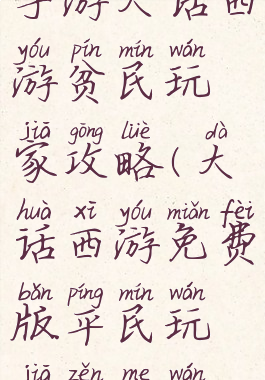 手游大话西
yóu pín mín wán
游贫民玩
jiā gōng lüè dà
家攻略(大
huà xī yóu miǎn fèi
话西游免费
bǎn píng mín wán
版平民玩
jiā zěn me wán